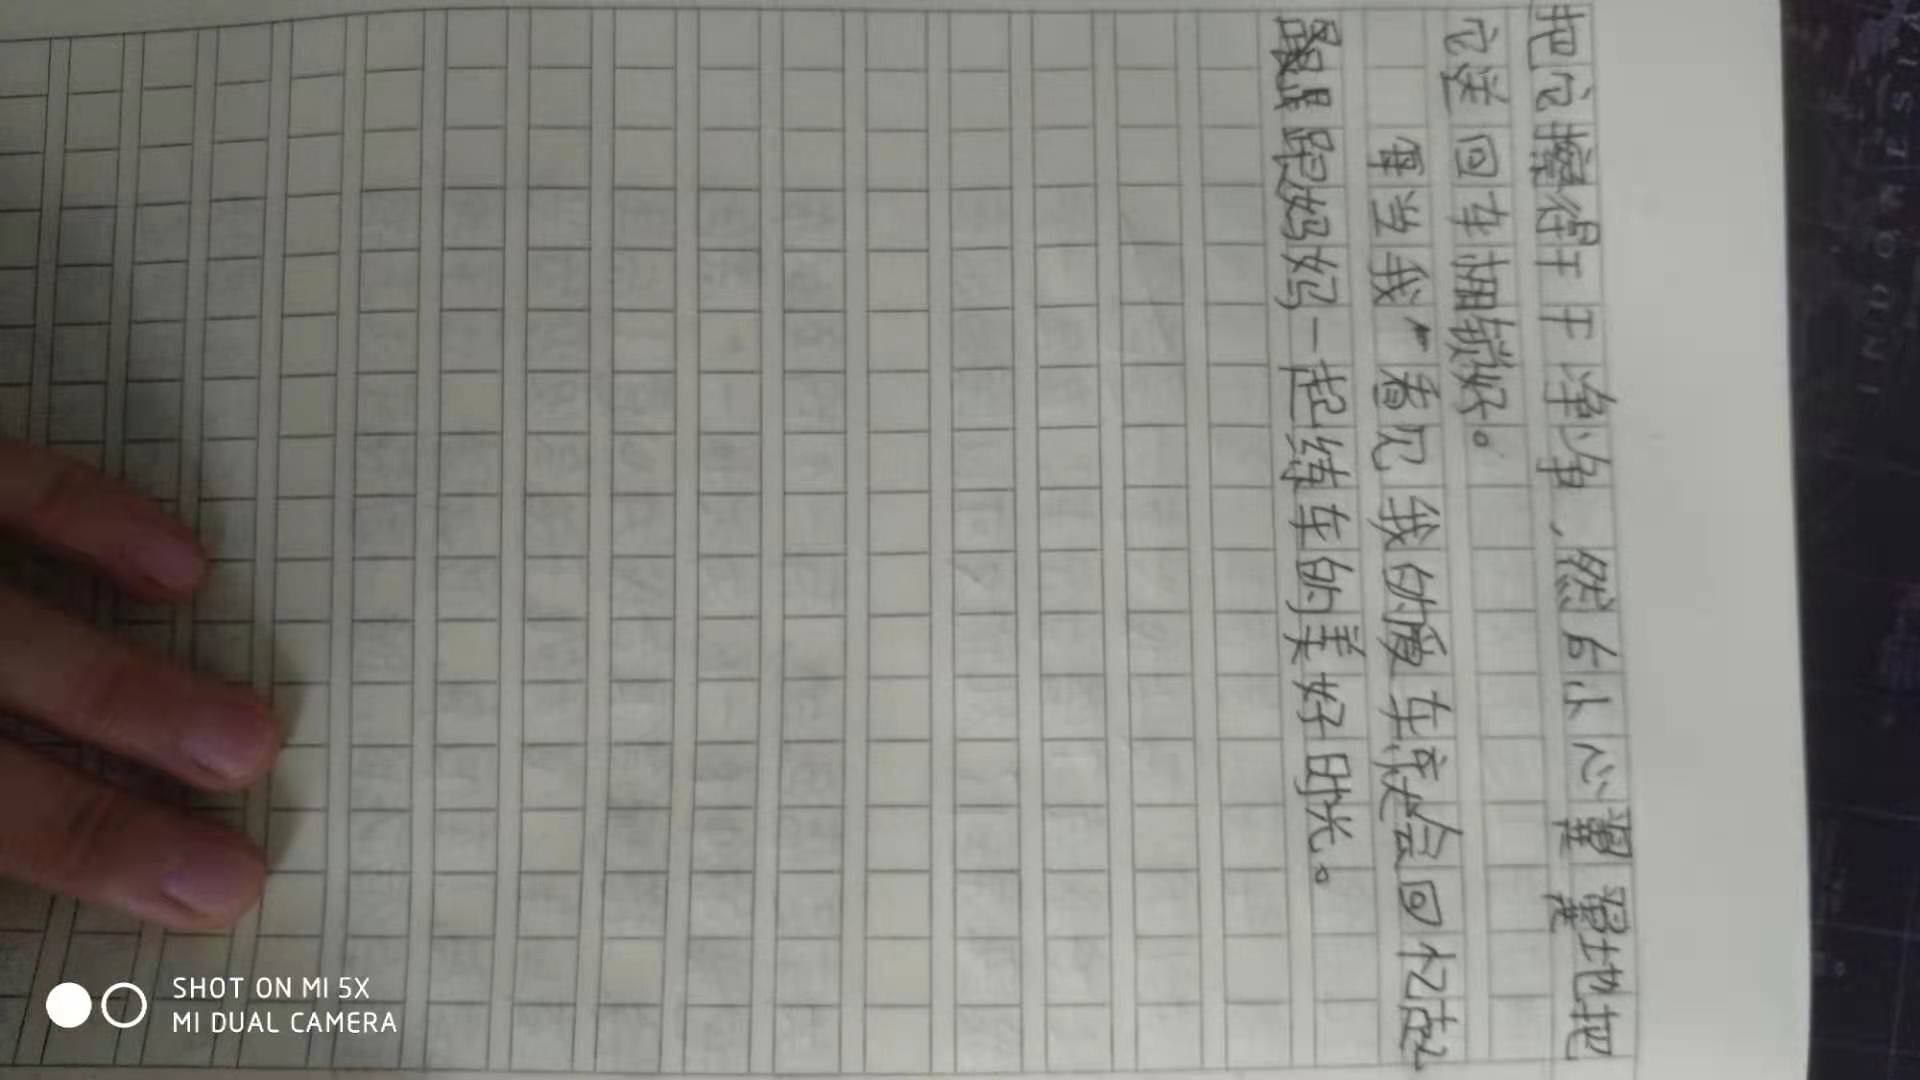 把它擦得干干净净,然后小心翼翼地把
它送回车棚锁好。
每当我看见我的爱车就会回忆起
跟妈妈一起练车的美好时光。
SHOT ON MI 5X
MI DUAL CAMERA